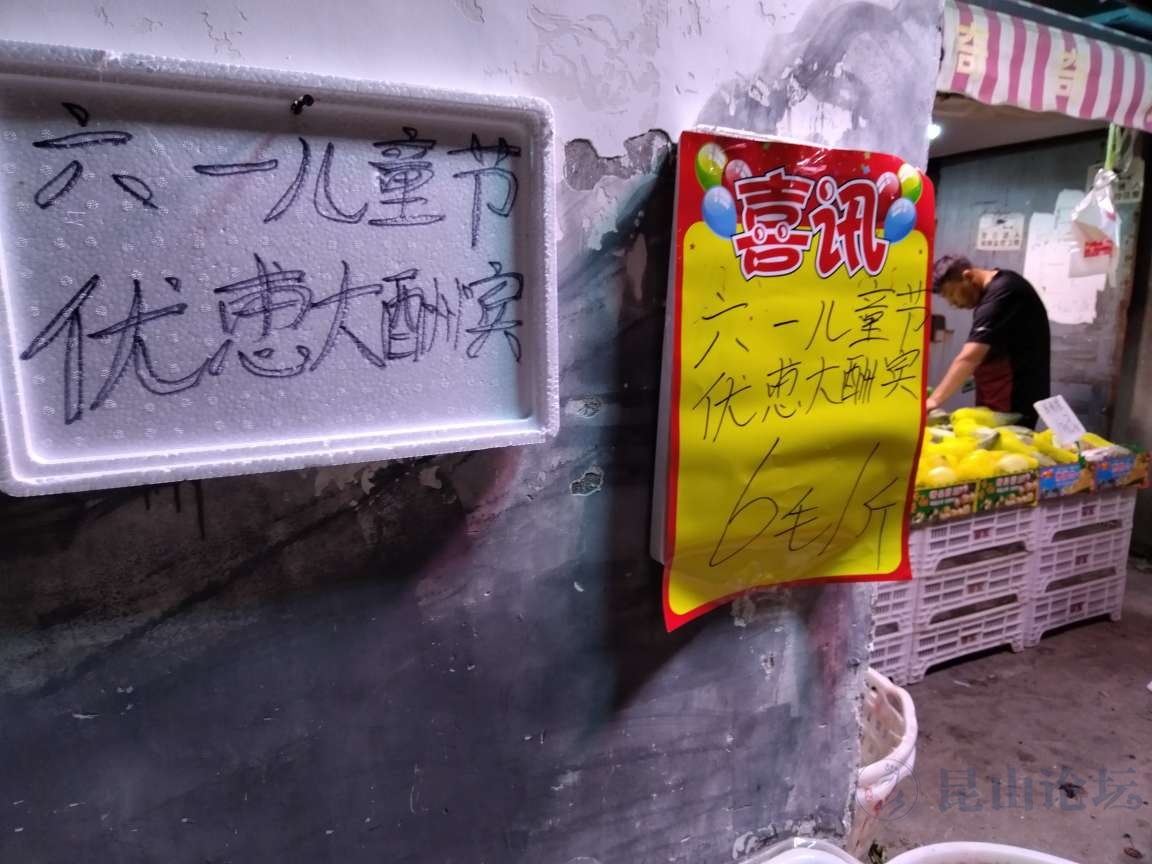 六一儿童节
优惠大酬宾
喜讯
六.一儿童节
优惠大酬宾
6毛1斤
昆山论坛